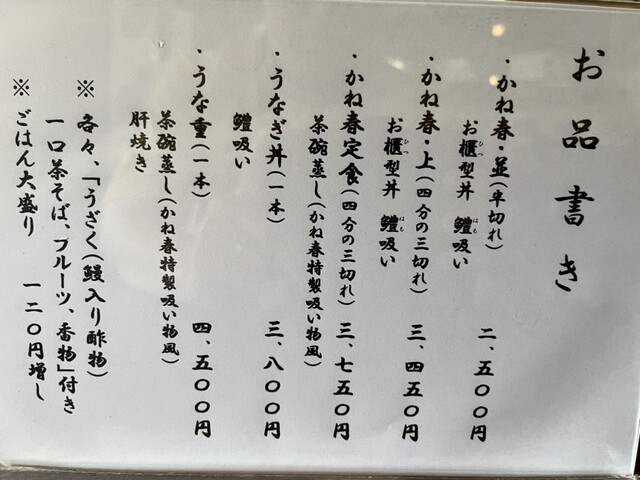 お品書き
・かね春・並(半切れ) 二、五〇〇円
お櫃型丼 鱧吸い
ひつ はも
・かね春・上(四分の三切れ) 三、四五〇円
お櫃型丼 鱧吸い
ひつ はも
・かね春定食(四分の三切れ) 三、七五〇円
茶碗蒸し(かね春特製吸い物風)
・うなぎ丼(一本) 三、八〇〇円
鱧吸い
・うな重(一本) 四、五〇〇円
茶碗蒸し(かね春特製吸い物風)
肝焼き
※ 各々、「うざく(鰻入り酢物)
一口茶そば、フルーツ、香物」付き
※ ごはん大盛り 一二〇円増し